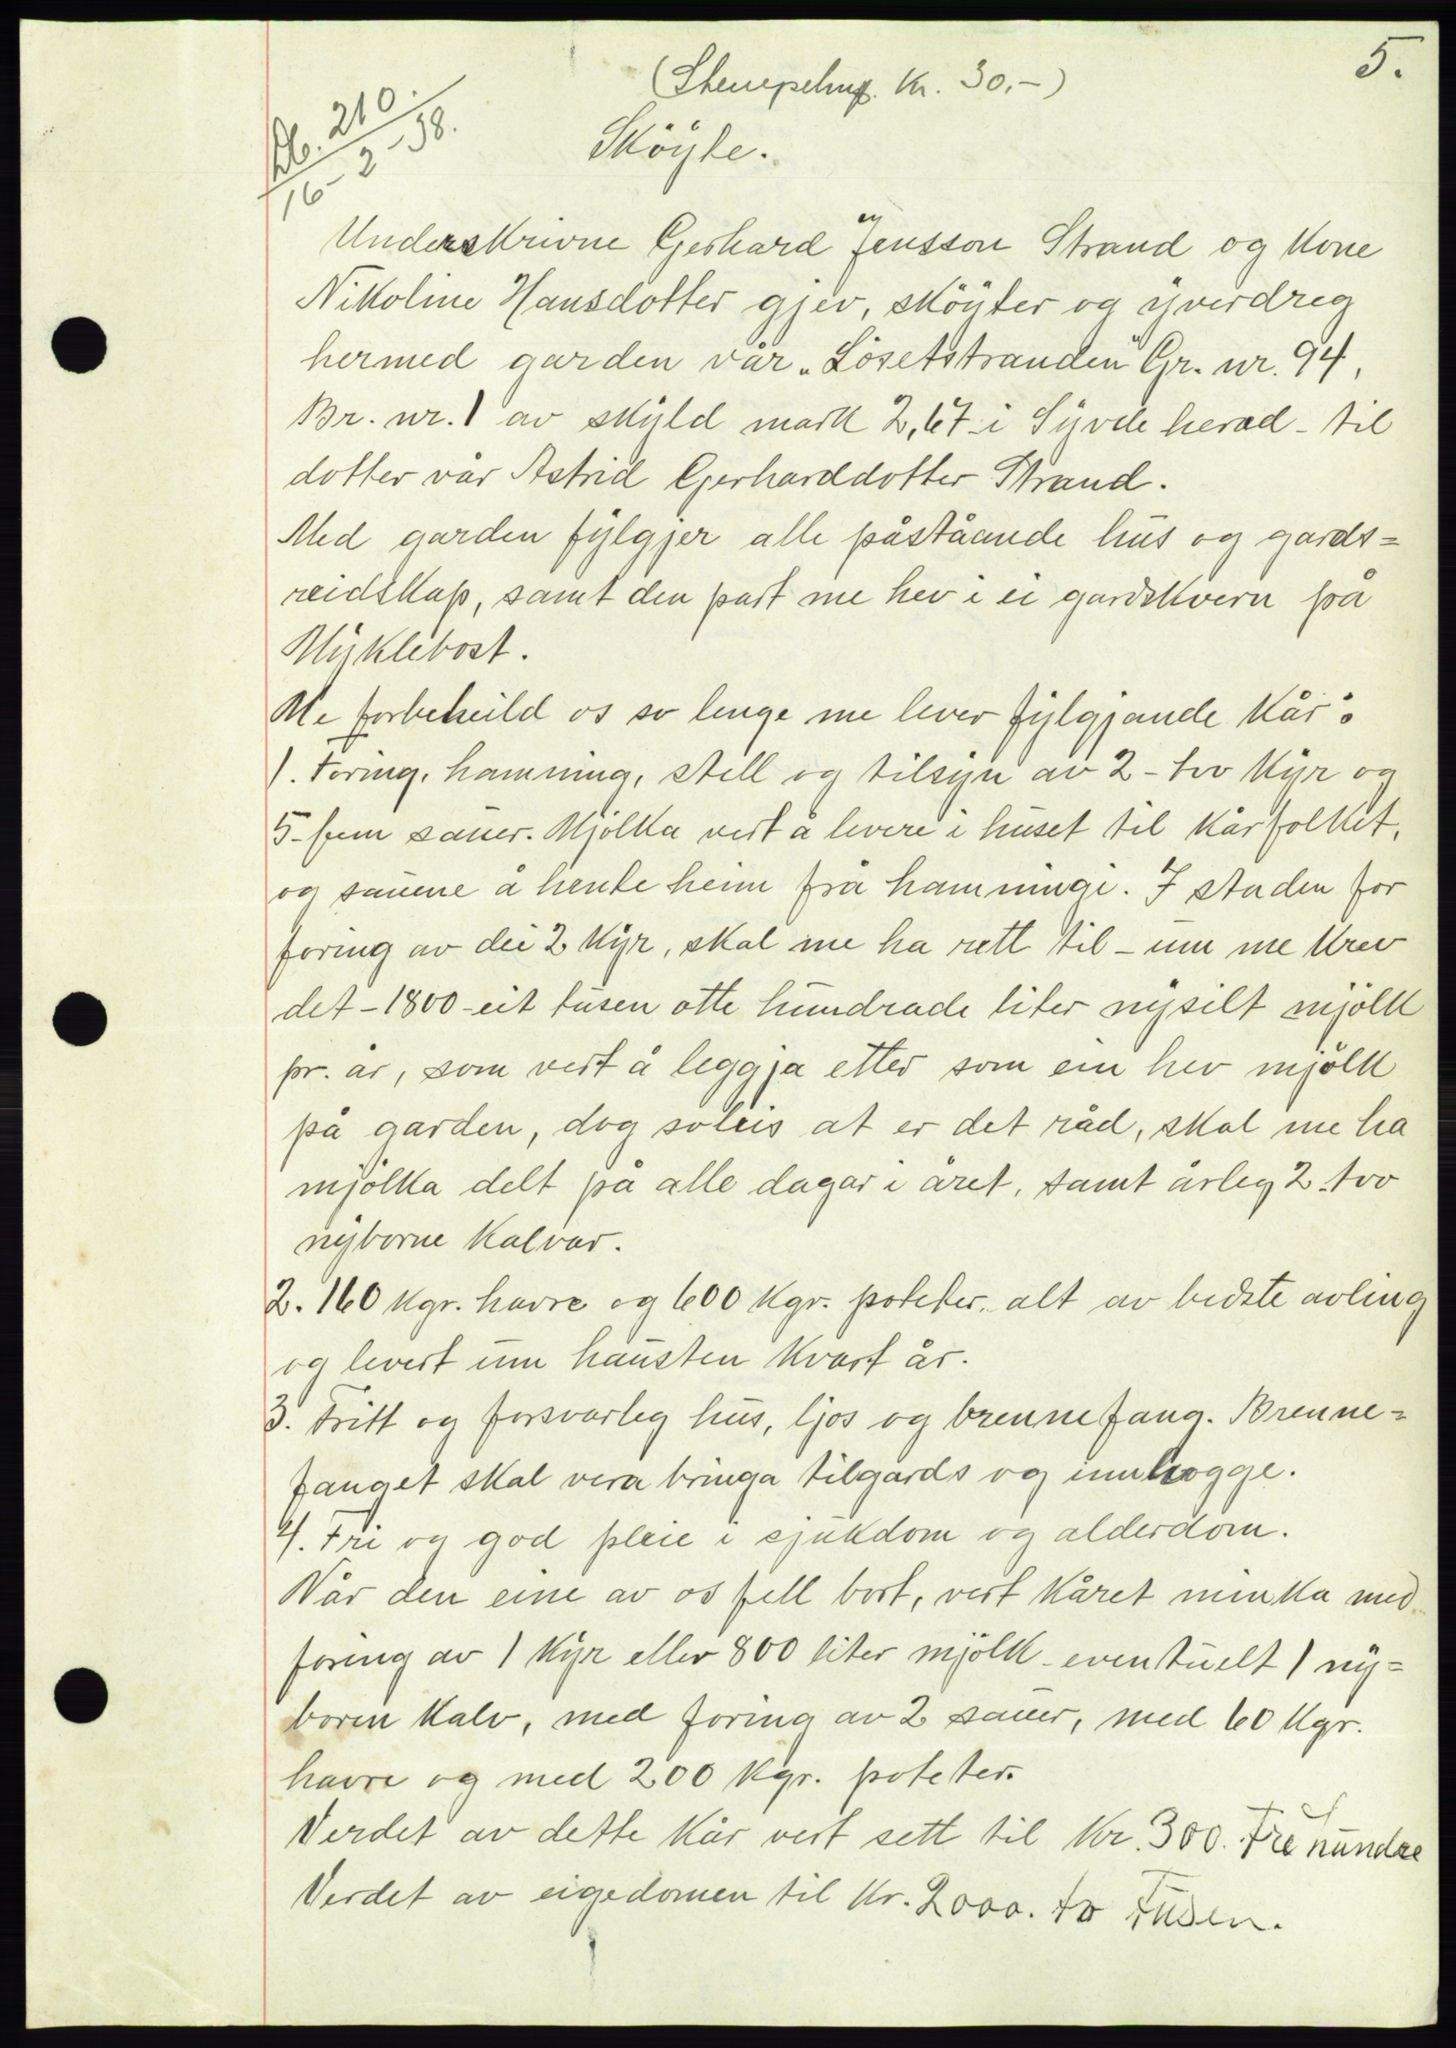 5.
(Stempelmrk. Kr. 30,-)
Db. 210.
16-2-38.
Sköyte.
Underskrivne Gerhard Jensson Strand og kone
Nikoline Hansdotter gjev, sköyter og yverdreg
hermed garden vår „Lösetstranden" Gr. nr. 94,
Br. nr. 1 av skyld mark 2,67 i Syvde herad - til
dotter vår Astrid Gerharddotter Strand.
Med garden fylgjer alle påståande hus og gards=
reidskap, samt den part me hev i ei gardskvern på
Myklebost.
Me forbeheild os so lenge me lever fylgjande kår:
1. Foring, hamning, stell og tilsyn av 2 - tvo kyr og
5 - fem sauer. Mjölka vert å levere i huset til kårfolket,
og sauene å hente heim frå hamningi. I staden for
foring av dei 2 kyr, skal me ha rett til - um me krev
det - 1800 - eit tusen otte hundrade liter nysilt mjölk
pr. år, som vert å leggja etter som ein hev mjölk
på garden, dog soleis at er det råd, skal me ha
mjölka delt på alle dagar i året, samt årleg 2 - tvo
nyborne kalvar.
2. 160 kgr. havre og 600 kgr. poteter, alt av bedste avling
og levert um hausten kvart år.
3. Fritt og forsvarleg hus, ljos og brennefang. Brenne=
fanget skal vera bringa tilgards og innhogge.
4. Fri og god pleie i sjukdom og alderdom.
Når den eine av os fell bort, vert kåret minka med
foring av 1 kyr eller 800 liter mjölk - eventuelt 1 ny=
boren kalv, med foring av 2 sauer, med 60 kgr.
havre og med 200 kgr. poteter.
Verdet av dette kår vert sett til kr. 300. Tre hundre
Verdet av eigedomen til kr. 2000. to Tusen.